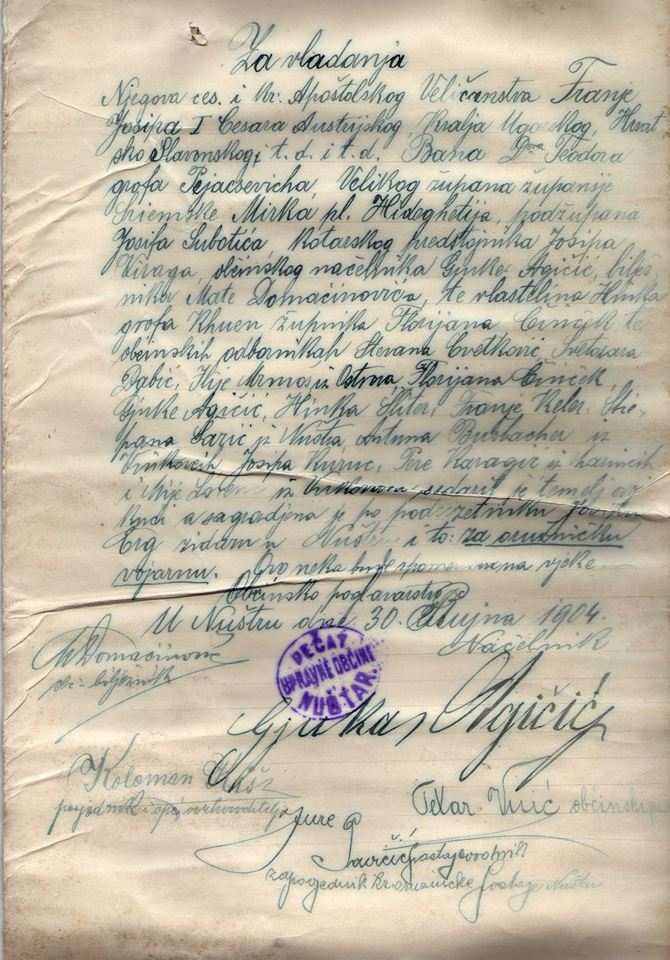 Za vladanja
Njegova ces. i kr. Apoštolskog Veličanstva Franje
Josipa I Cesara Austrijskog, Kralja Ugarskog, Hrvat
sko Slavonskog i t. d. i t. d. Bana Dra Teodora
grofa Pejacsevicha, Velikog župana županije
Sriemske Mirka pl. Hideghetija, podžupana
Josifa Subotića, kotarskog predstojnika Josipa
Viraga, občinskog načelnika Gjuke Agičić, bilež-
nika Mate Domaćinovića, te vlastelina Hinka
grofa Khuen župnika Florijana Činček te
občinskih odbornikah Stevana Cvetković, Svetozara
Babić, Ilije Mrmoš iz Ostrova, Florijana Činček,
Gjuke Agičić, Hinka Fliter, Franje Keler, Stje-
pana Lazić iz Nuštra, Antuna Burbacher iz
Vinkovcih Josipa Kuruc, Pere Karagić iz
i Ilije iz je temelj ovoj
kući a sagradjena je po poduzetniku Josipu
Erg zidaru u Nuštru i to: za oružničku
vojarnu. Ovo neka bude spomenuta na vjeke.
Občinsko poglavarstvo
U Nuštru dne 30. Rujna 1904.
Načelnik
M Domaćinović
ob. bilježnik
PEČAT
UPRAVNE OBĆINE
NUŠTAR
Gjuka Agičić
Koloman
Petar Vusić občinski
Jure
Jurčić
zapovjednik kr. oružničke postaje Nuštar